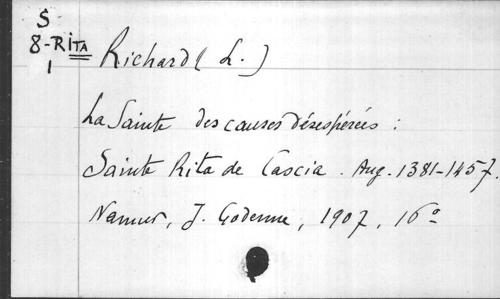 S
8-RITA
1
Richard (L.)
La Sainte des causes désespérées :
Sainte Rita de Cascia. Aug. 1381-1457.
Namur, J. Godenne, 1907, 16°